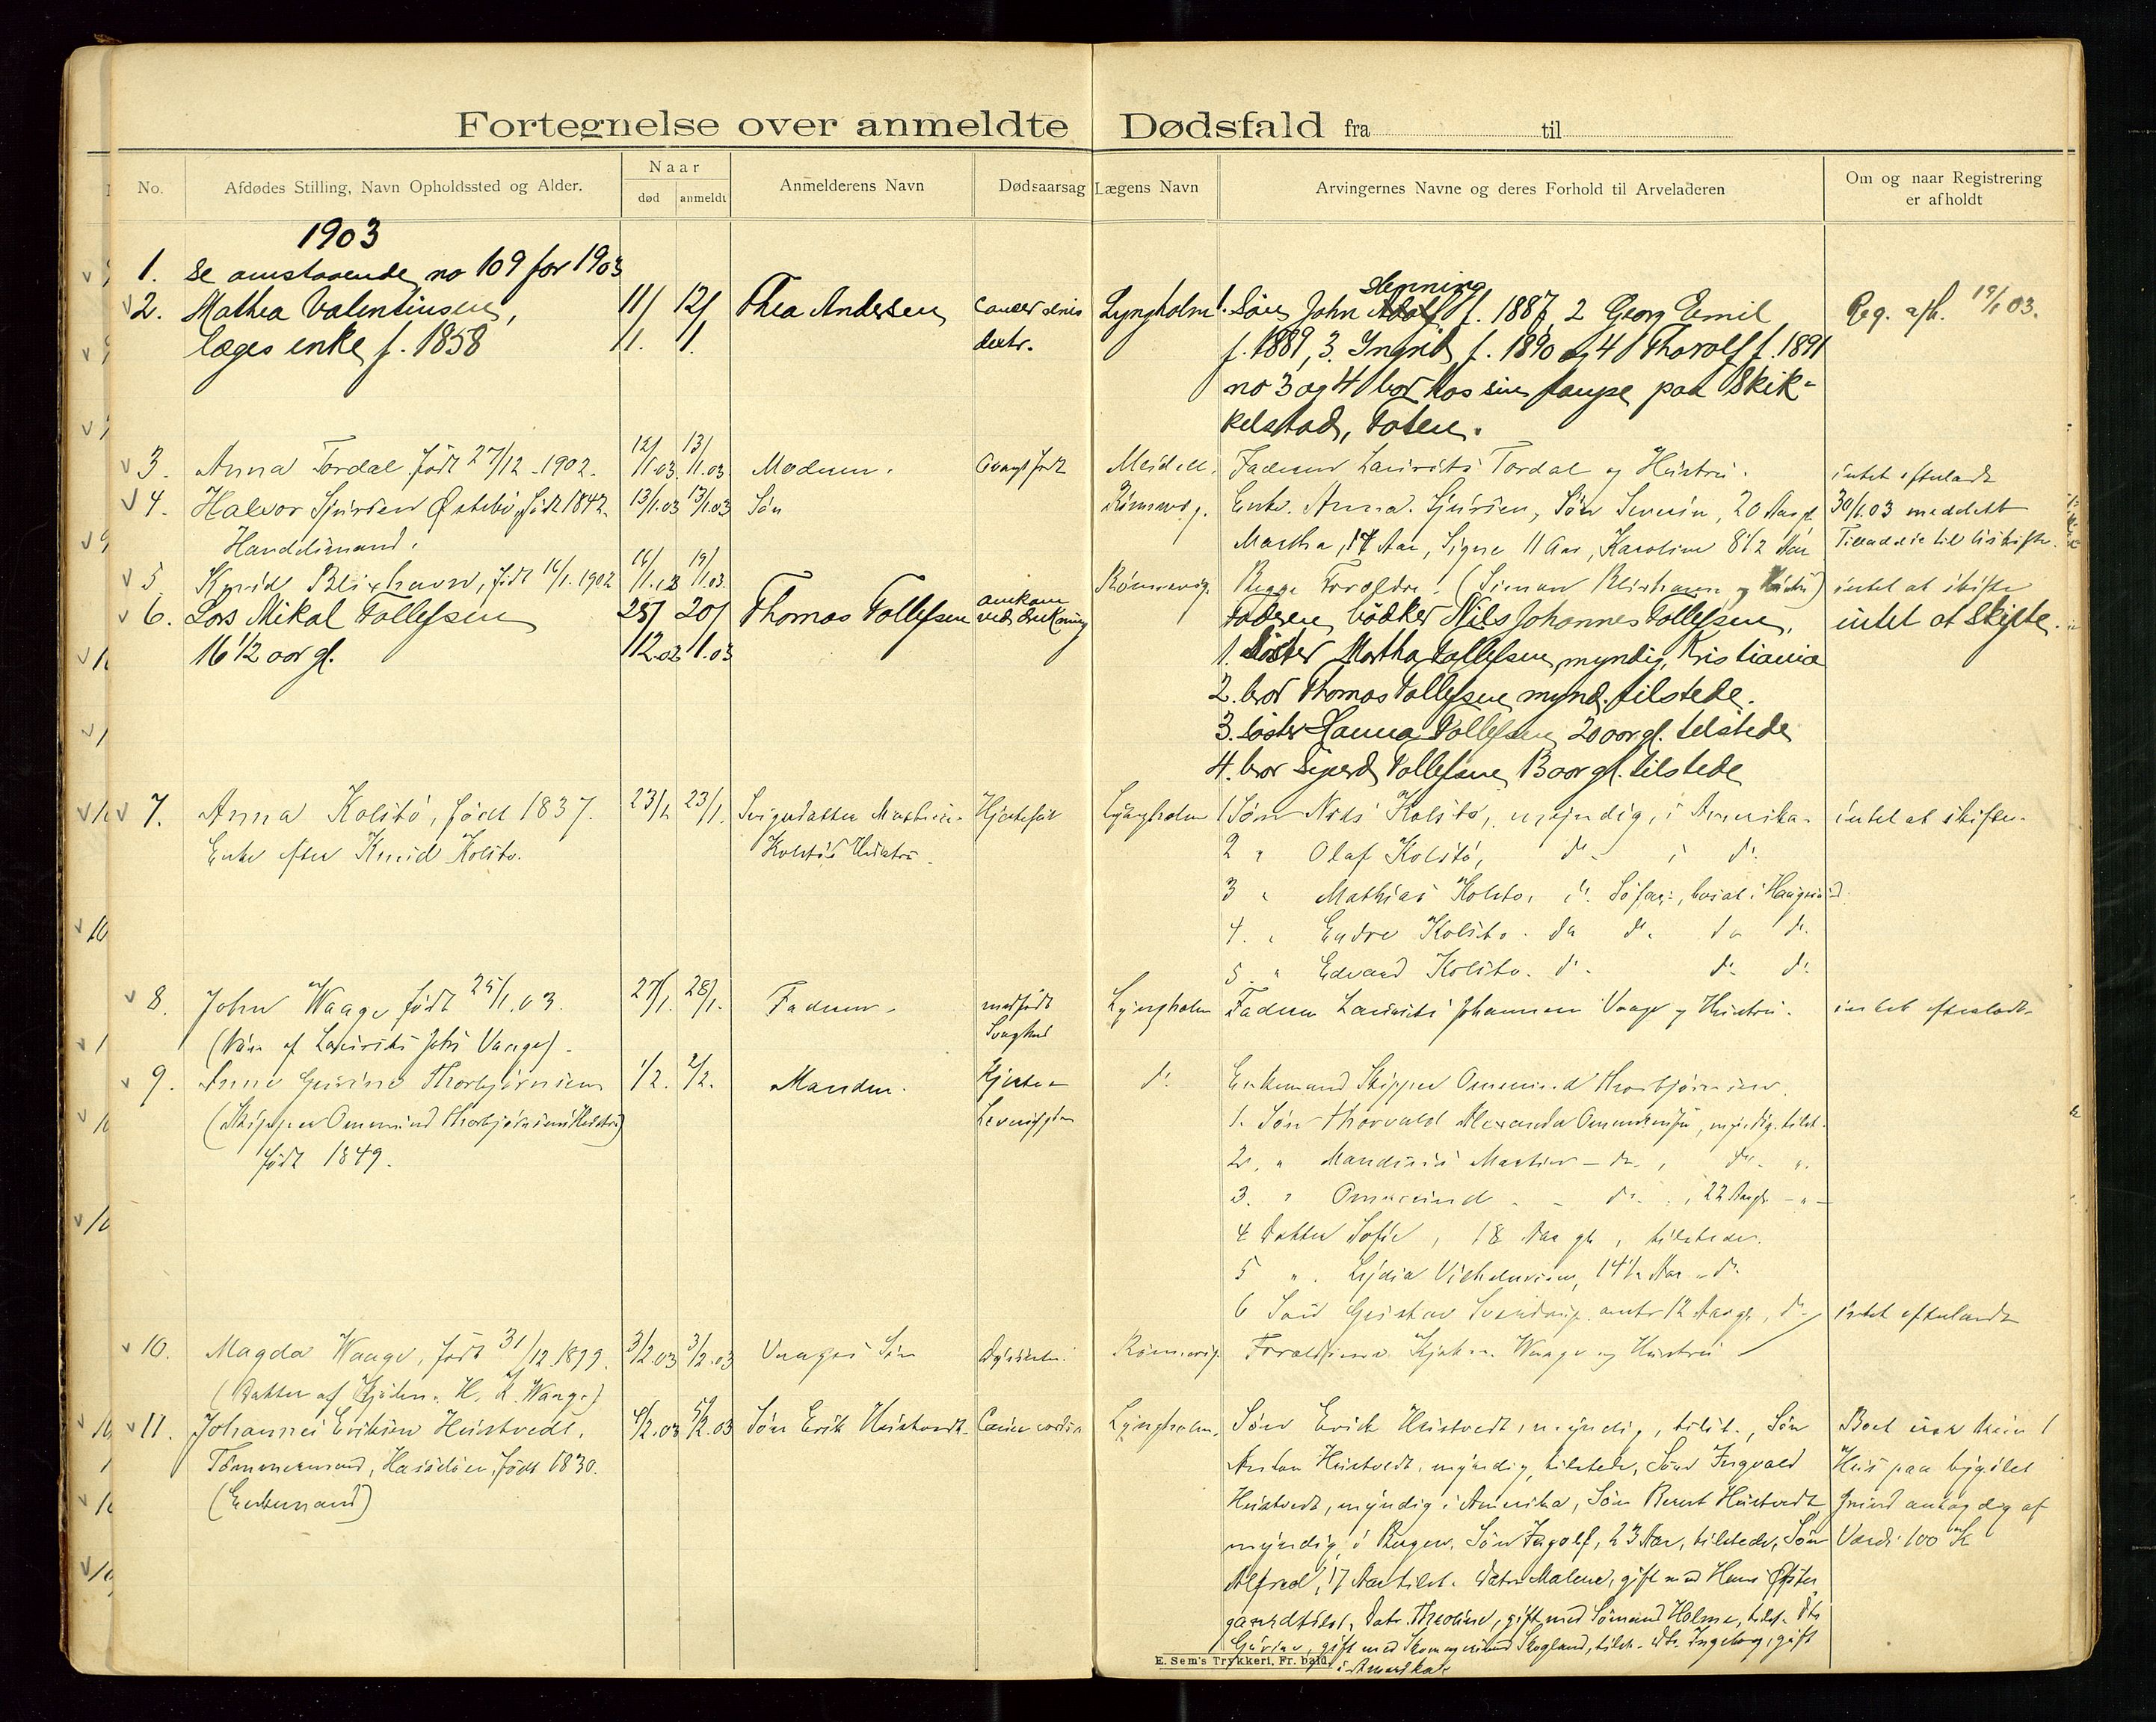 Fortegnelse over anmeldte Dødsfald fra til
No. Afdødes Stilling, Navn Opholdssted og Alder. Naar død anmeldt Anmelderens Navn Dødsaarsag Lægens Navn Arvingernes Navne og deres Forhold til Arveladeren Om og naar Registrering er afholdt
1903
1. Se omstaaende no 109 for 1903
2. Mathea Valentinsen, 11/ 12/ Thea Andersen Lyngholm 1. Søn John Henning f. 1887, 2 Georg Emil Reg. afh. 19/1 03.
læges enke f. 1858 1. 1. dextr. f. 1889, 3. Ingrid f. 1890 og 4 Thorolf f. 1891
no 3 og 4 bor hos sin paa Skik-
kelstad, Toten.
3. Anna Tordal født 27/12-1902. 12/1.03 13/1.03 Moderen. Meidell. Faderen Laurits Tordal og Hustru. intet efterladt
4. Halvor Sjursen Østebø, født 1842. 13/1.03 13/1.03 Søn Rømcke. Enke Anna Sjursen, Søn Severin, 20 Aar gl 30/1.03 meddelt
Handelsmand. Martha, 17 Aar, Signe 11 Aar, Karoline 8 1/2 Aar Tilladelse til
5. Blixhavn, født 16/1.1902 16/1.03 19/1.03. Begge Forældre. (Simon Blixhavn og Hustru) intet at skifte
6. Lars Mikal Tollefsen 25/ 20/ Thomas Tollefsen omkom ved drukning Faderen, bødker Nils Johannes Tollefsen, intet at skifte.
16 1/2 aar gl. 12.02 1.03 1. Søster Martha Tollefsen, myndig, Kristiania
2. bror Thomas Tollefsen mynd. tilstede.
3. søster Hanna Tollefsen 20 aar gl. tilstede
4. bror Sigurd Tollefsen 13 aar gl. tilstede
7. Anna Kolstø, født 1837. 23/1 23/1. Svigerdatter Hjertefeil Lyngholm 1 Søn Nils Kolstø, myndig, i Amerika. intet at skifte.
Enke efter Knud Kolstø. Kolstøs Hustru. 2 " Olaf Kolstø, do. i do.
3 " Mathias Kolstø, do. bosat i Haugesund
4. " Endre Kolstø. do do. do do.
5. " Edvard Kolstø. do. do. do.
8. John Waage født 25/1.03. 27/1. 28/1. Faderen. medfødt Lyngholm Faderen Laurits Johannesen Vaage og Hustru. intet efterladt.
(Søn af Laurits Johs Vaage). Svaghed
9. Anne Gurine Thorbjørnsen 1/2. 2/2. Manden. Hjerte- do. Enkemand Skipper Ommund Thorbjørnsen.
(Skipper Ommund Thorbjørnsens Hustru) 1. Søn Thorvald Alexander Ommundsen, myndig, tilst.
født 1849. 2. " Mandius Martin - do. , do. ".
3. " Ommund - - do. , 22 Aar gl. - " -
4 Datter Sofie, 18 Aar gl, tilstede.
5 " Lydia Vilhelmine, 14 1/2 Aar " do.
6 Søn Gustav 12 Aar gl, do. intet efterladt
10. Magda Waage, født 31/12.1899. 3/2.03 3/2.03 Vaages Søn Forældrene Waage og Hustru
(Datter af H. K. Waage)
11. Johannes Eriksen Hustvedt, 4/2.03 5/2.03 Søn Erik Hustvedt. Lyngholm. Søn Erik Hustvedt, myndig, tilst., Søn Boet 1
Tømmermand, Hasseløen, født 1830. Anton Hustvedt, myndig, tilstede, Søn Ingvald Hus paa bygslet
(Enkemand) Hustvedt, myndig i Amerika, Søn Bernt Hustvedt Grund af
myndig i Bergen, Søn Ingolf, 23 Aar, tilstede, Søn Værdi 100 Kr
Alfred, 17 Aar tilst. Datr Malene, gift med Hans Øster
gaard tilst. Datr. Theoline, gift med Sømand Holme, tilst. Dtr
Gurine, gift med Skomager Skogland, tilst. Dtr. Ingeborg, gift
i Amerika.
E. Sem's Trykkeri, Fr. hald.